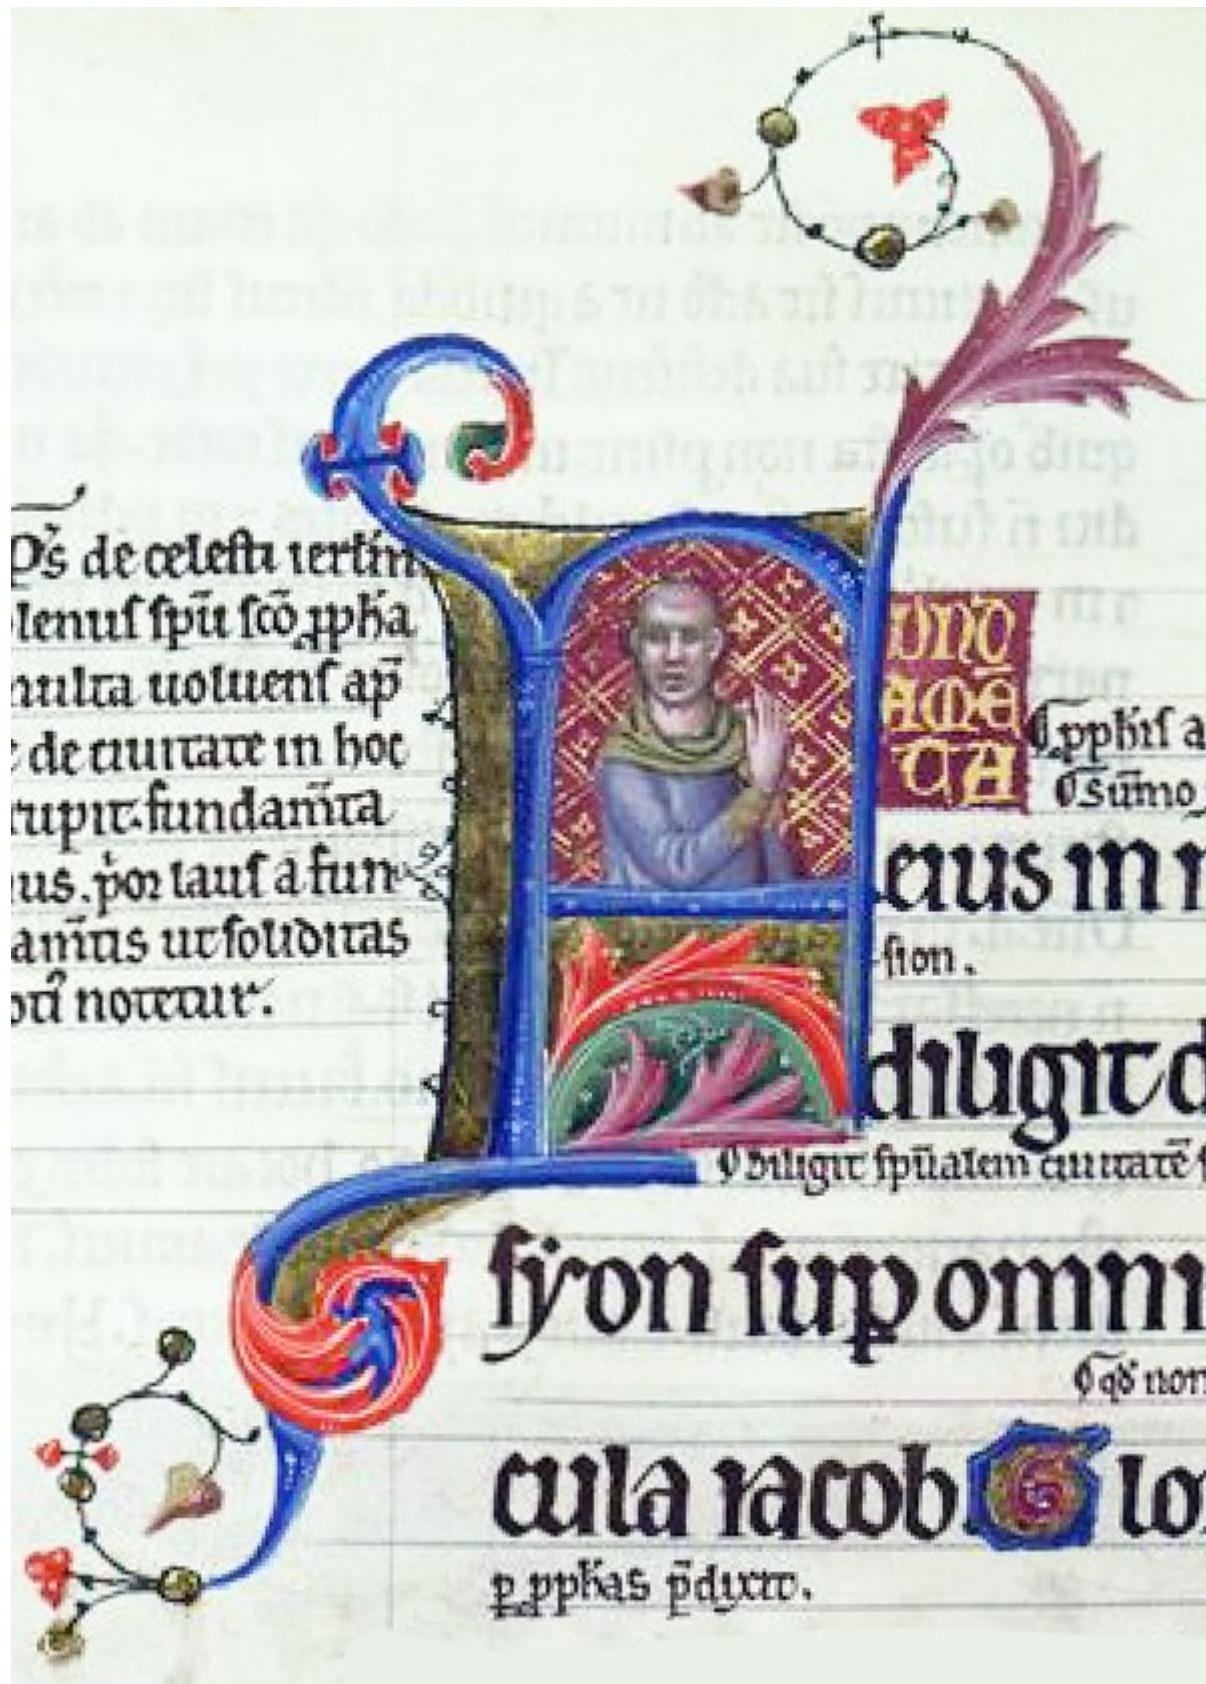 de celesti ierłm
lenuſ ſpū ſcō ꝓpħa
ulta uoluenſ ap̄
de ciuitate in hoc
rupit. fundam̄ta
us. lauſ ā fun
am̄tis ut ſoliditas
notetur.
F
UND
AMĒ
TA
ꝓpħiſ a
Sūmo
eius in
ſion.
diligit d
Diligit ſpūalem ciuitatē ſ
ſyon ſuꝑ omni
qđ non
cula iacob. Glo
ꝑ ꝓpħas p̄dixit.